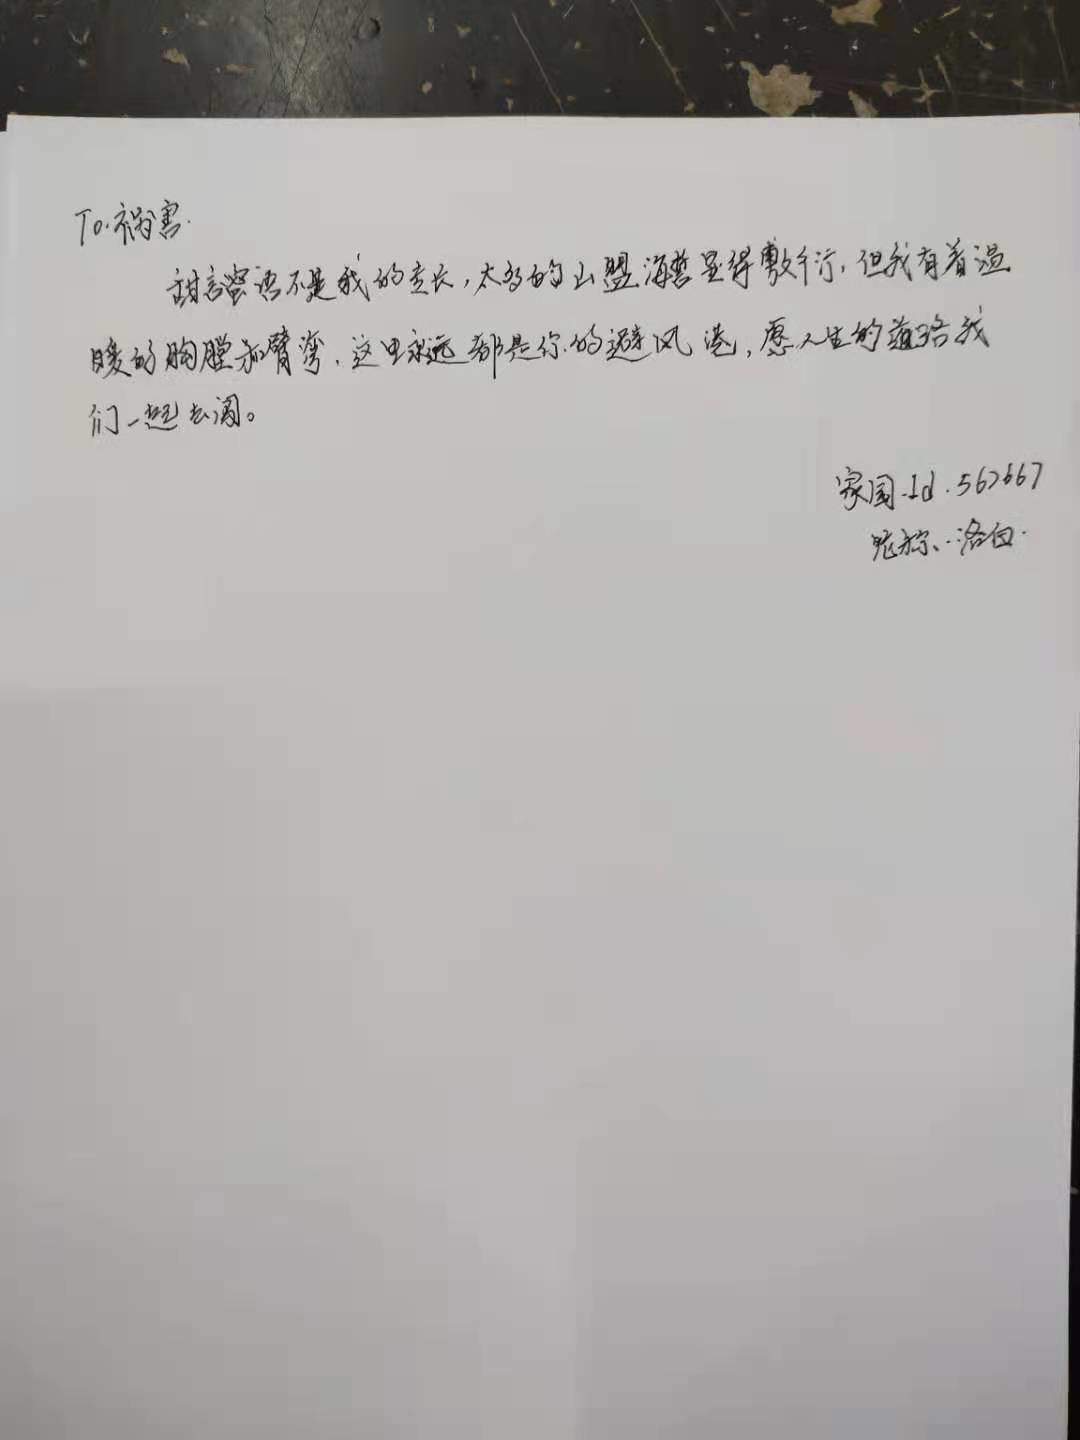 To.祸害.
甜言蜜语不是我的专长,太多的山盟海誓显得敷衍,但我有着温
暖的胸膛和臂弯.这里永远都是你的避风港,愿人生的道路我
们一起去闯。
家国.Id.567667
昵称、洛白.